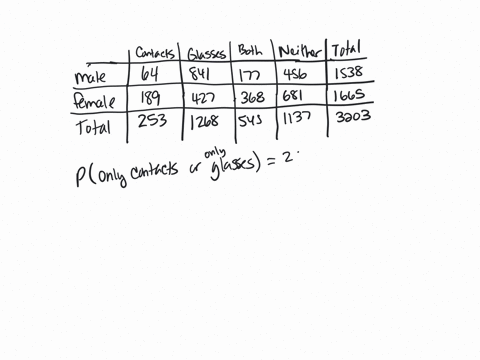 Contacts Glasses Both Neither Total
male 64 841 177 456 1538
female 189 427 368 681 1665
Total 253 1268 545 1137 3203
P(only contacts or only glasses) = 2